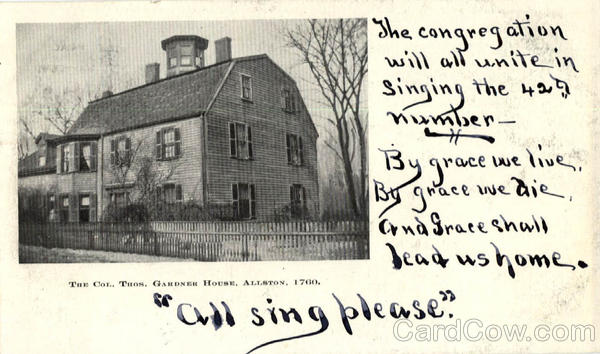 The congregation
will all unite in
Singing the 42d,
number —
By grace we live,
By grace we die,
And Grace shall
lead us home.
THE COL. THOS. GARDNER HOUSE, ALLSTON, 1760.
"All sing please."
CardCow.com